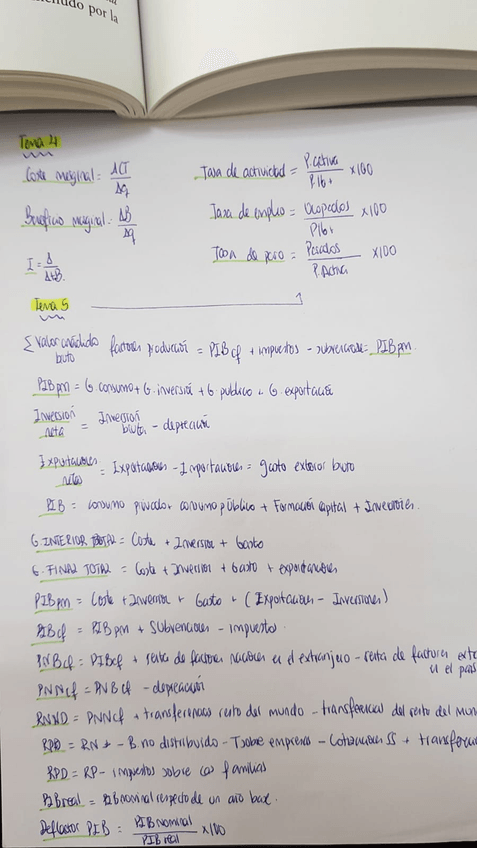 nudo por la
Tema 4
Coste marginal = ΔCT / Δq
Tasa de actividad = P. activa / P.16+ x100
Beneficio marginal = ΔB / Δq
Tasa de empleo = Ocupados / P16+ x100
I = Δ
Tasa de paro = Parados / P. Activa x100
Tema 5
Σ Valor añadido bruto factores producción = PIBcf + impuestos - subvenciones = PIBpm
PIBpm = G. consumo + G. inversión + G. publico + G. exportación
Inversión neta = Inversión bruta - depreciación
Exportaciones netas = Exportaciones - Importaciones = gasto exterior bruto
PIB = consumo privado + consumo público + Formación Capital + Inversiones.
G. INTERIOR TOTAL = Coste + Inversion + Gasto
G. FINAL TOTAL = Coste + Inversion + Gasto + exportaciones
PIBpm = Coste + Inversion + Gasto + (Exportaciones - Inversiones)
PIBcf = PIBpm + Subvenciones - impuesto
PNBcf = PIBcf + renta de factores nacionales en el extranjero - renta de factores
en el país
PNNcf = PNBcf - depreciación
RNND = PNNcf + transferencias resto del mundo - transferencias del resto del
= RN - B. no distribuido - T sobre empresas - Cotizaciones SS +
RPD = RP - impuestos sobre las familias
PIB real = PIB nominal respecto de un año base.
Deflactor PIB = PIB nominal / PIB real x100